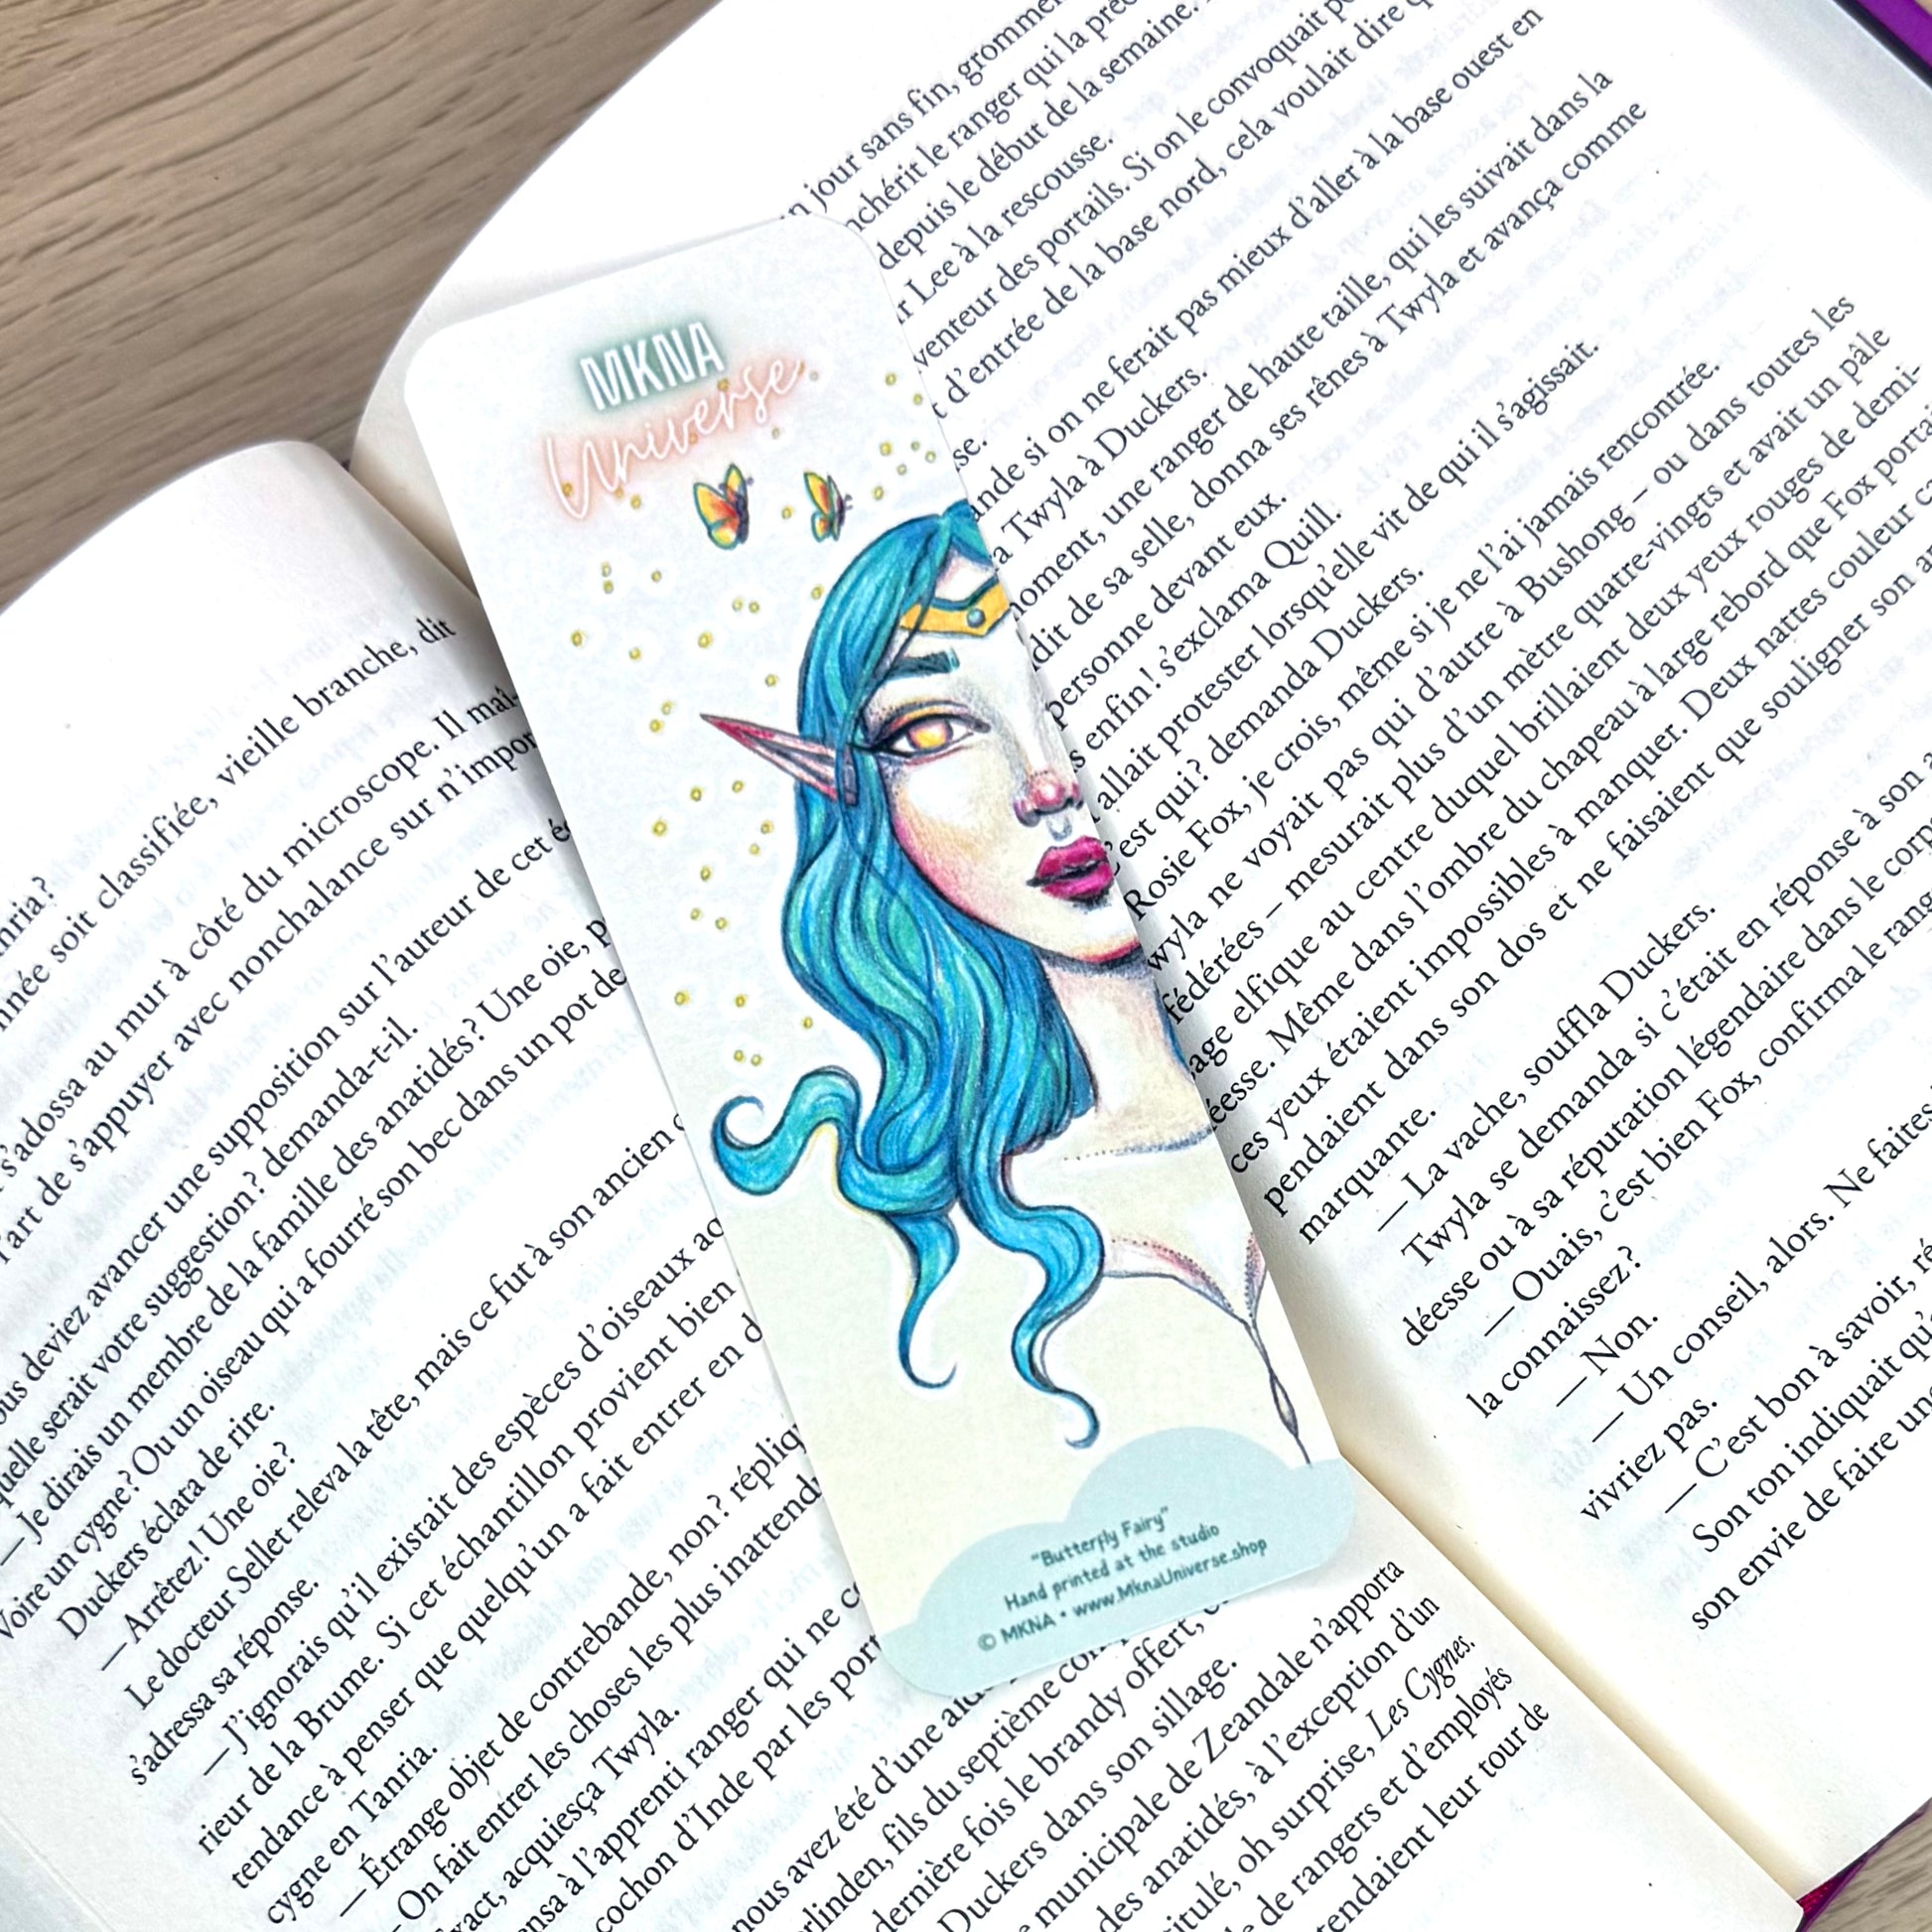 MKNA
Universe
"Butterfly Fairy"
Hand printed at the studio
© MKNA • www.MknaUniverse.shop
née soit classifiée, vieille branche, dit
s'adossa au mur à côté du microscope. Il mal-
l'art de s'appuyer avec nonchalance sur n'impor
ous deviez avancer une supposition sur l'auteur de cet
quelle serait votre suggestion? demanda-t-il.
— Je dirais un membre de la famille des anatidés? Une oie,
Voire un cygne? Ou un oiseau qui a fourré son bec dans un pot de
Duckers éclata de rire.
— Arrêtez! Une oie?
Le docteur Sellet releva la tête, mais ce fut à son ancien
s'adressa sa réponse.
— J'ignorais qu'il existait des espèces d'oiseaux
rieur de la Brume. Si cet échantillon provient bien
tendance à penser que quelqu'un a fait entrer en
cygne en Tanria.
— Étrange objet de contrebande, non? répliq
— On fait entrer les choses les plus inattend
xact, acquiesça Twyla.
nsa à l'apprenti ranger qui ne
cochon d'Inde par les por
nous avez été d'une
rlinden, fils du septième
dernière fois le brandy offert,
Duckers dans son sillage.
municipale de Zeandale n'apporta
des anatidés, à l'exception d'un
titulé, oh surprise, Les Cygnes.
de rangers et d'employés
tendaient leur tour de
jour sans fin, gromme
nchérit le ranger qui la
depuis le début de la semaine.
r Lee à la rescousse.
venteur des portails. Si on le convoquait
t d'entrée de la base nord, cela voulait dire
se.
ande si on ne ferait pas mieux d'aller à la base ouest en
a Twyla à Duckers.
moment, une ranger de haute taille, qui les suivait dans la
dit de sa selle, donna ses rênes à Twyla et avança comme
personne devant eux.
s enfin! s'exclama Quill.
allait protester lorsqu'elle vit de qui il s'agissait.
'est qui? demanda Duckers.
Rosie Fox, je crois, même si je ne l'ai jamais rencontrée.
wyla ne voyait pas qui d'autre à Bushong – ou dans toutes les
fédérées – mesurait plus d'un mètre quatre-vingts et avait un pâle
sage elfique au centre duquel brillaient deux yeux rouges de demi-
éesse. Même dans l'ombre du chapeau à large rebord que Fox portai
ces yeux étaient impossibles à manquer. Deux nattes couleur
pendaient dans son dos et ne faisaient que souligner son
marquante.
— La vache, souffla Duckers.
Twyla se demanda si c'était en réponse à son
déesse ou à sa réputation légendaire dans le corp
— Ouais, c'est bien Fox, confirma le rang
la connaissez?
— Non.
— Un conseil, alors. Ne faites
vivriez pas.
— C'est bon à savoir,
Son ton indiquait qu'
son envie de faire un